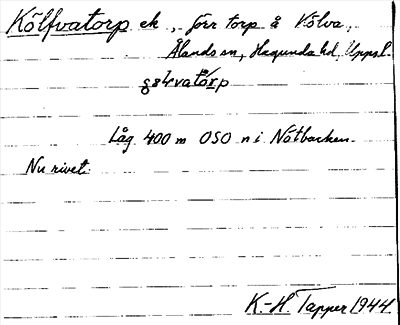 Kölfvatorp ek, förr torp å Kölva,
Ålands sn, Hagunda hd, Uppsl.
Låg 400 m OSO n i Nötbacken.
Nu rivet.
K.-H. Tapper 1944